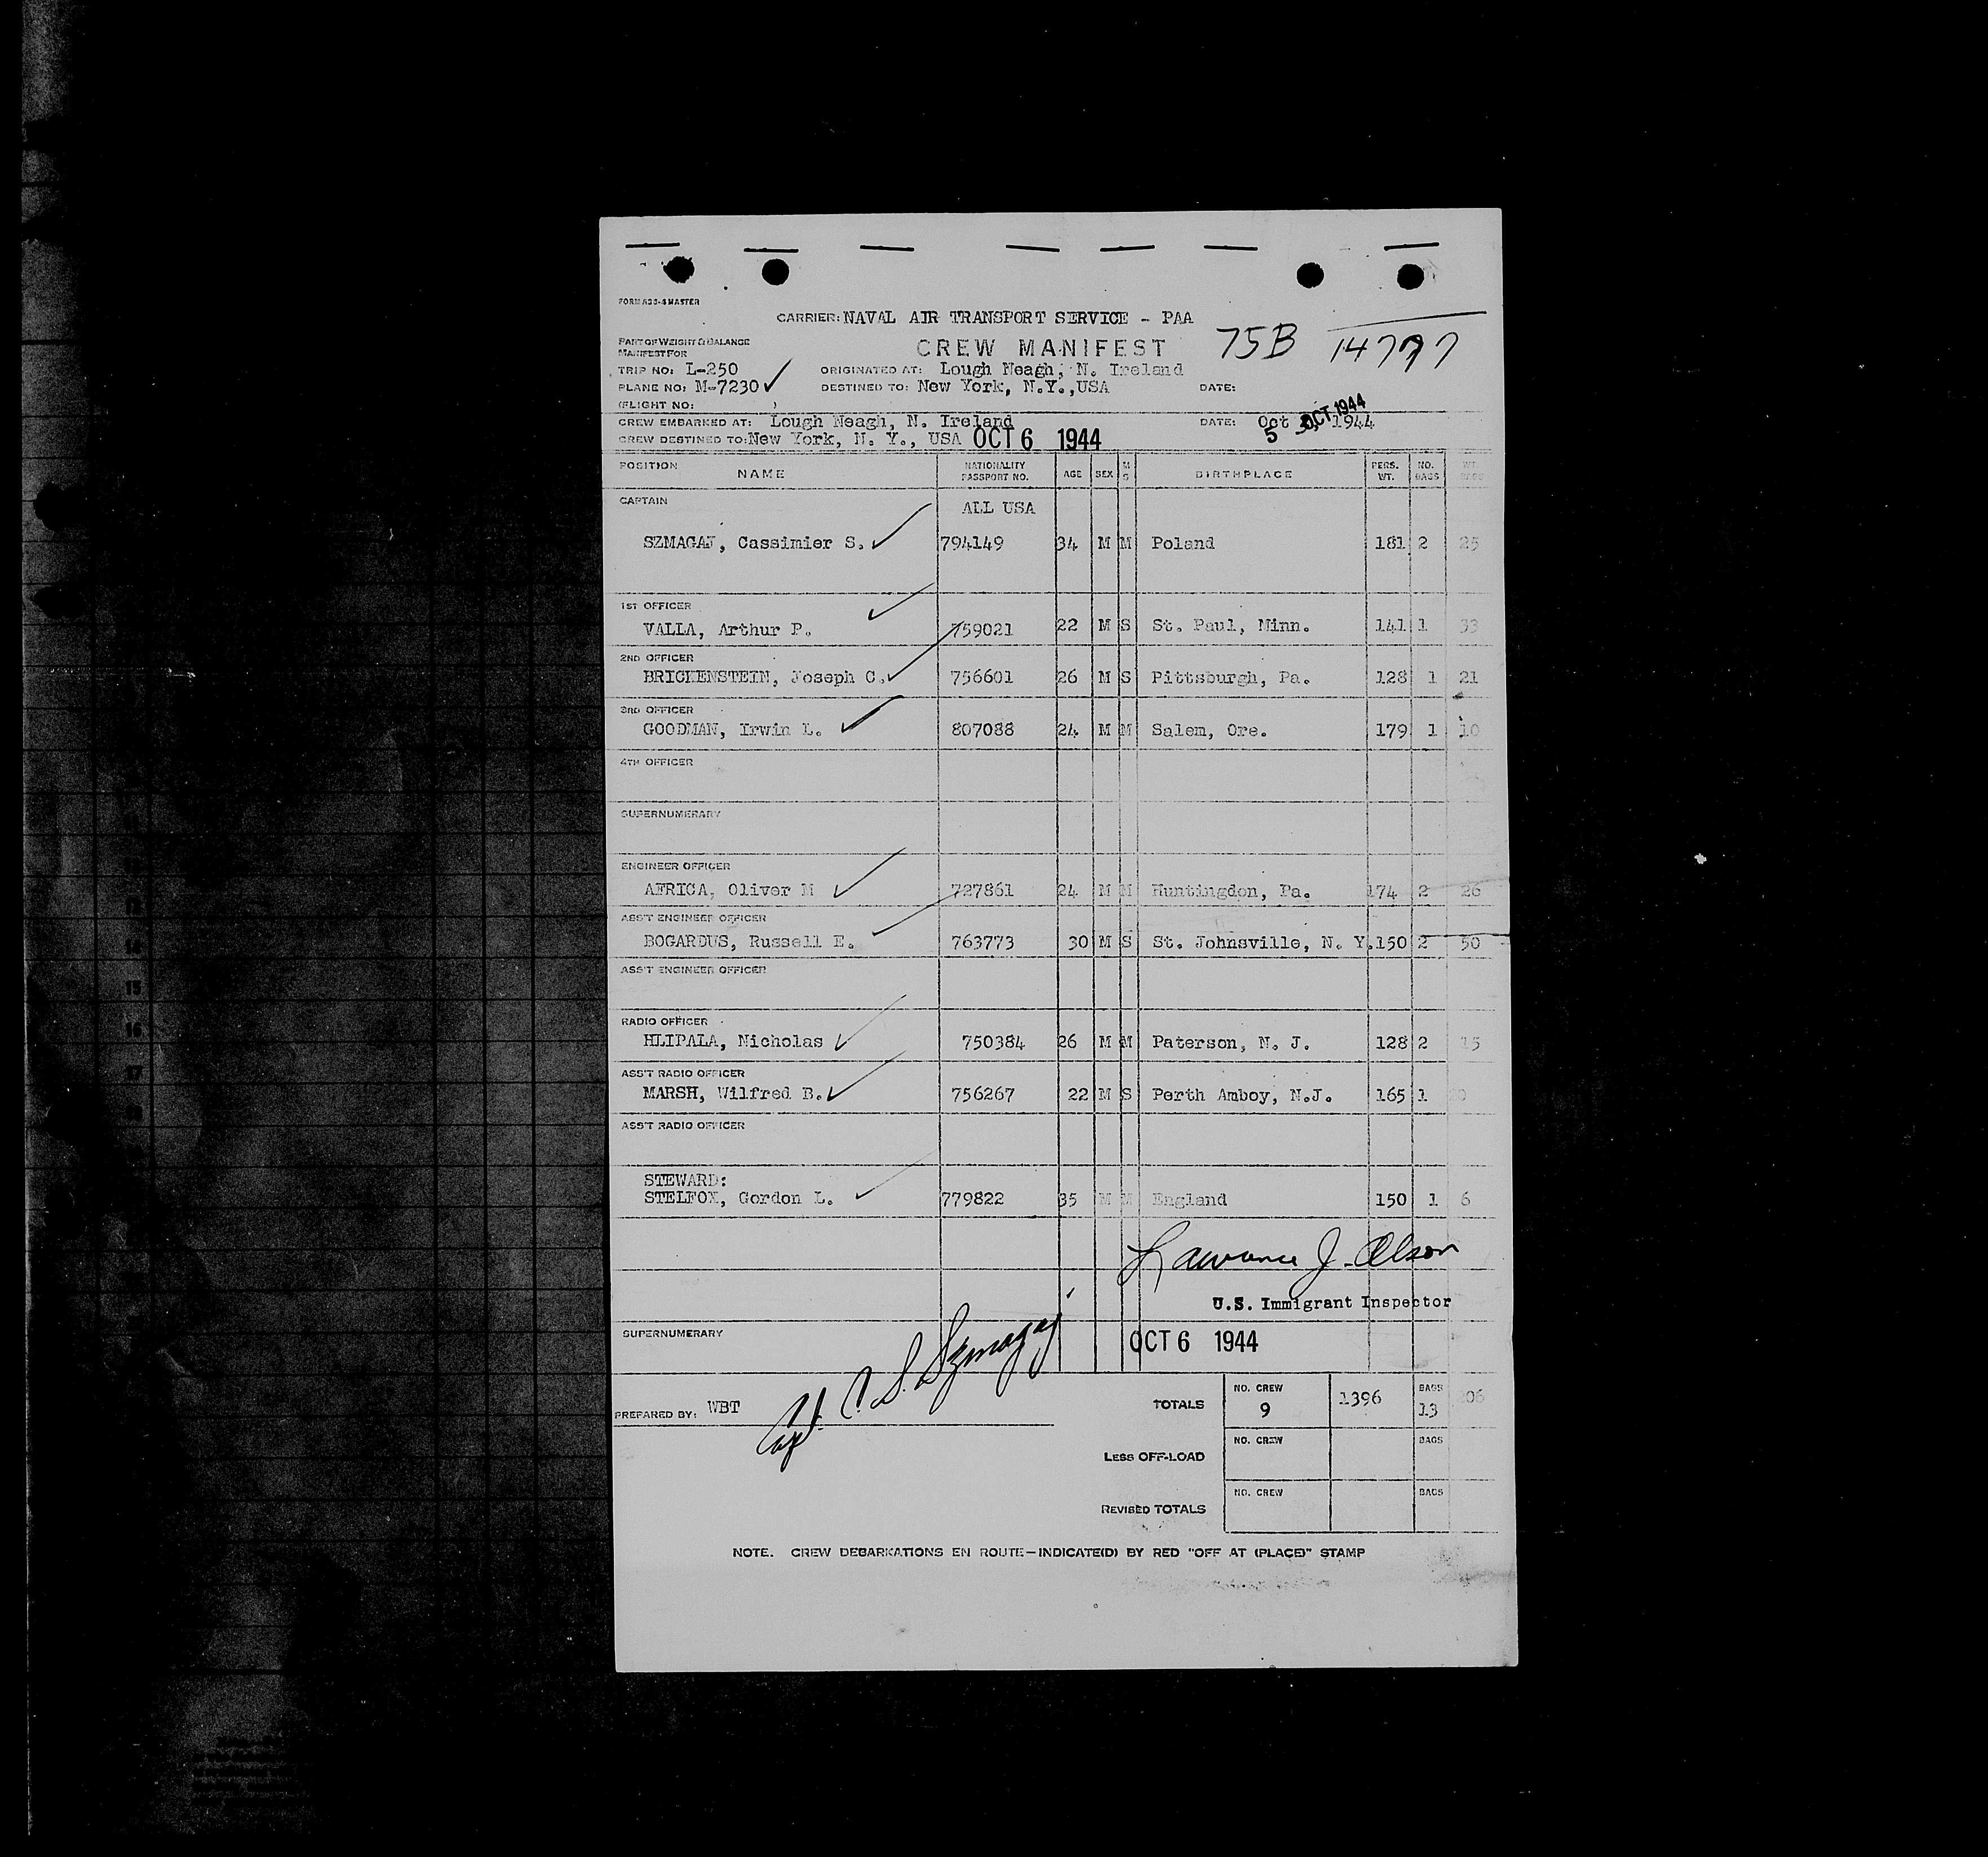 FORM A33-5 MASTER
CARRIER: NAVAL AIR TRANSPORT SERVICE - PAA
PART OF WEIGHT & BALANCE
MANIFEST FOR
CREW MANIFEST 75B 14777
TRIP NO: L-250 ORIGINATED AT: Lough Neagh, N. Ireland
PLANE NO: M-7230 DESTINED TO: New York, N.Y.,USA DATE:
(FLIGHT NO: )
CREW EMBARKED AT: Lough Neagh, N. Ireland DATE: Oct 5 OCT 1944 1944
CREW DESTINED TO: New York, N. Y., USA OCT 6 1944
POSITION NAME NATIONALITY PASSPORT NO. AGE SEX M S BIRTHPLACE PERS. WT. NO. BAGS WT.
CAPTAIN ALL USA
SZMAGAJ, Cassimier S. 794149 34 M M Poland 181 2 25
1ST OFFICER
VALLA, Arthur P. 759021 22 M S St. Paul, Minn. 141 1 33
2ND OFFICER
BRICKENSTEIN, Joseph C. 756601 26 M S Pittsburgh, Pa. 128 1 21
3RD OFFICER
GOODMAN, Irwin L. 807088 24 M M Salem, Ore. 179 1 10
4TH OFFICER
SUPERNUMERARY
ENGINEER OFFICER
AFRICA, Oliver M 727861 24 M M Huntingdon, Pa. 174 2 26
ASS'T ENGINEER OFFICER
BOGARDUS, Russell E. 763773 30 M S St. Johnsville, N. Y. 150 2 50
ASS'T ENGINEER OFFICER
RADIO OFFICER
HLIPALA, Nicholas 750384 26 M M Paterson, N. J. 128 2 15
ASS'T RADIO OFFICER
MARSH, Wilfred B. 756267 22 M S Perth Amboy, N.J. 165 1 20
ASS'T RADIO OFFICER
STEWARD:
STELFOX, Gordon L. 779822 35 M M England 150 1 6
Lawrence J. Olson
U.S. Immigrant Inspector
SUPERNUMERARY OCT 6 1944
Capt. C. S. Szmagaj
PREPARED BY: WBT TOTALS NO. CREW 9 1396 BAGS 13 206
LESS OFF-LOAD NO. CREW BAGS
REVISED TOTALS NO. CREW BAGS
NOTE. CREW DEBARKATIONS EN ROUTE—INDICATE(D) BY RED "OFF AT (PLACE)" STAMP